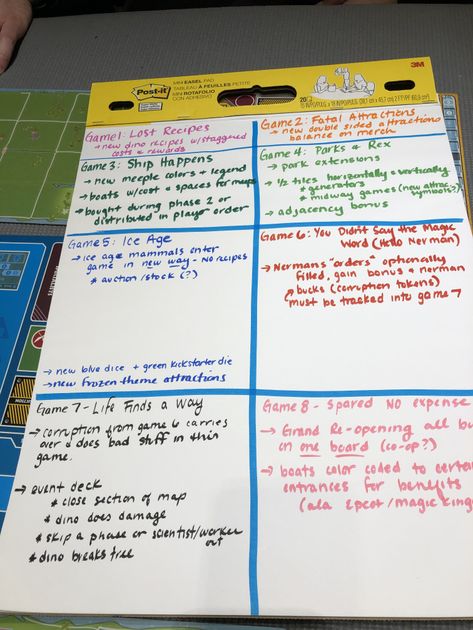 Post-it
MINI EASEL PAD
TABLEAU À FEUILLES PETITE
MINI ROTAFOLIO
CON ADHESIVO
3M
20
Game 1: Lost Recipes
→ new dino recipes w/staggered
costs & rewards
Game 2: Fatal Attractions
→ new double sided attractions
balance on merch
Game 3: Ship Happens
→ new meeple colors + legend
→ boats w/cost + spaces for meeps
→ bought during phase 2 or
distributed in player order
Game 4: Parks & Rex
→ park extensions
→ 1/2 tiles horizontally & vertically
* generators
* midway games (new attrac.
symbols?)
→ adjacency bonus
Game 5: Ice Age
→ Ice age mammals enter
game in new way - no recipes
* auction/stock (?)
→ new blue dice + green kickstarter die
→ new frozen theme attractions
Game 6: You Didn't Say the Magic
Word (Hello Nerman)
→ Nermans "orders" optionally
filled, gain bonus & nerman
bucks (corruption tokens)
must be tracked into game 7
Game 7 - Life Finds a Way
→ corruption from game 6 carries
over & does bad stuff in this
game.
→ event deck
* close section of map
* dino does damage
* skip a phase or scientist/worker
out
* dino breaks free
Game 8 - Spared No Expense
→ Grand Re-opening all bu
on one board (co-op?)
→ boats color coded to certai
entrances for benefits
(ala Epcot/magic king